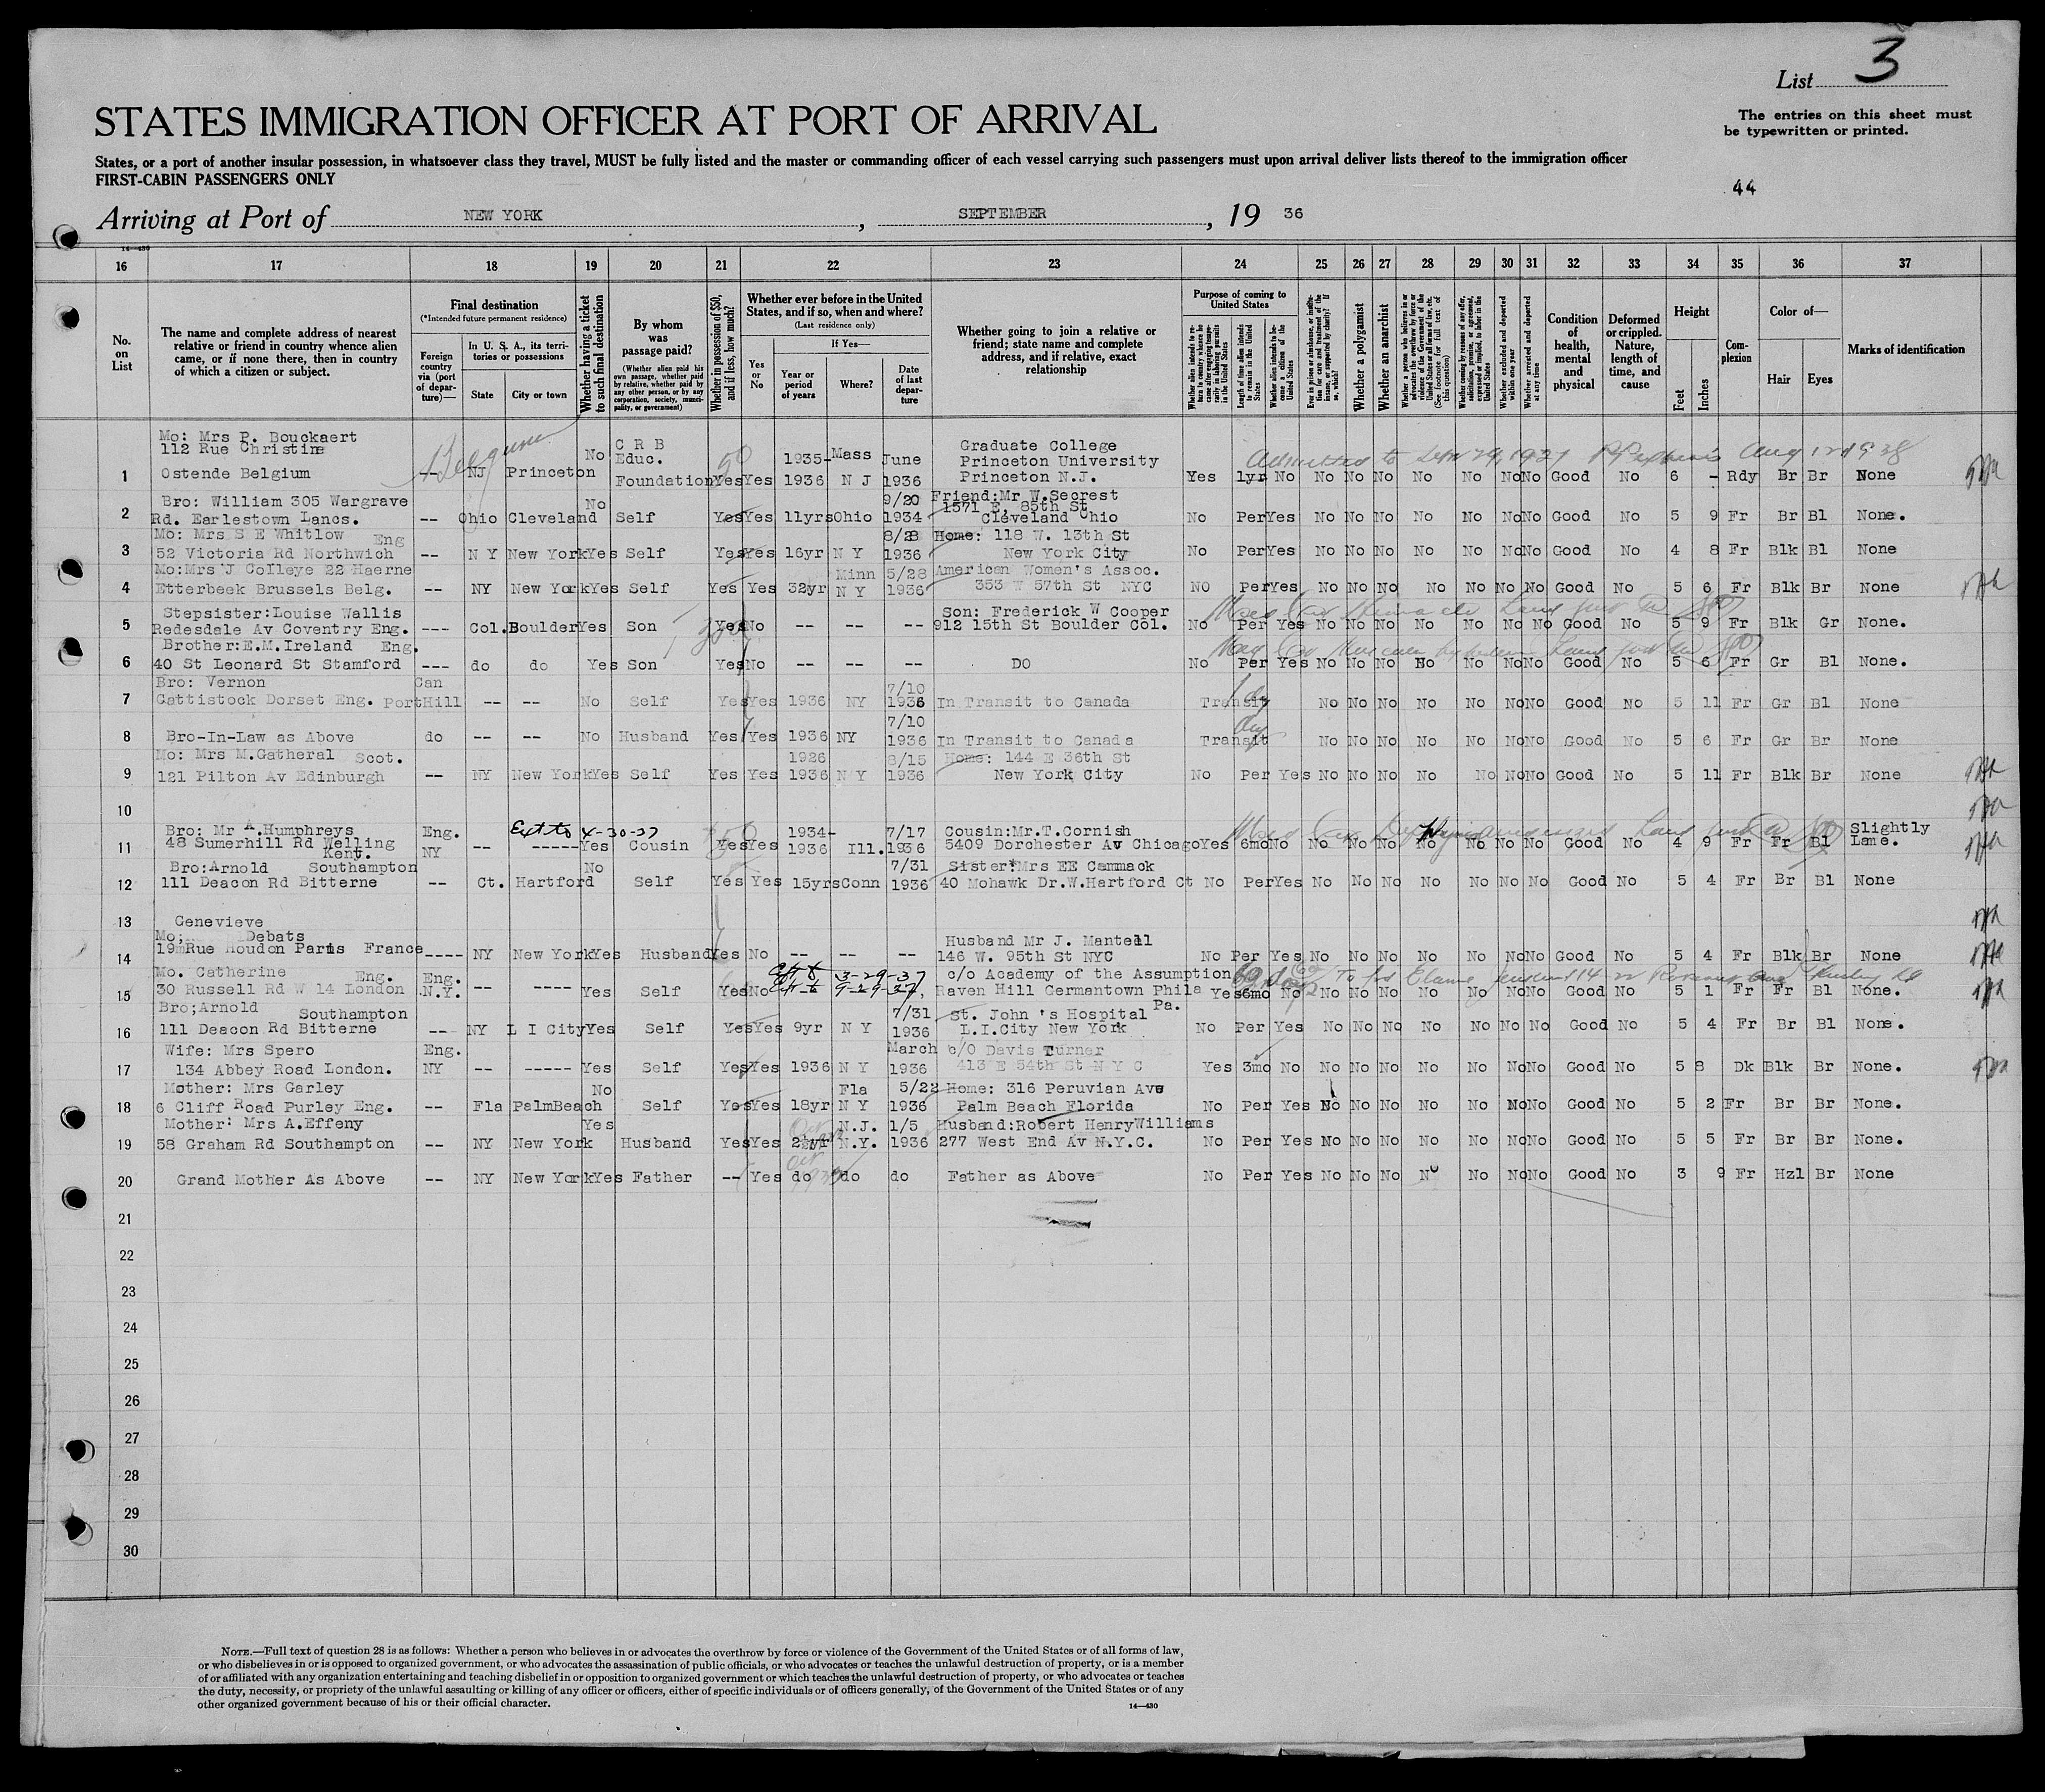 List 3
STATES IMMIGRATION OFFICER AT PORT OF ARRIVAL
The entries on this sheet must
be typewritten or printed.
States, or a port of another insular possession, in whatsoever class they travel, MUST be fully listed and the master or commanding officer of each vessel carrying such passengers must upon arrival deliver lists thereof to the immigration officer
FIRST-CABIN PASSENGERS ONLY
44
Arriving at Port of NEW YORK, SEPTEMBER, 19 36
14—430
16 17 18 19 20 21 22 23 24 25 26 27 28 29 30 31 32 33 34 35 36 37
No. on List
The name and complete address of nearest relative or friend in country whence alien came, or if none there, then in country of which a citizen or subject.
Final destination
(*Intended future permanent residence)
Foreign country via (port of departure)—
In U. S. A., its territories or possessions
State
City or town
Whether having a ticket to such final destination
By whom was passage paid?
(Whether alien paid his own passage, whether paid by relative, whether paid by any other person, or by any corporation, society, municipality, or government)
Whether in possession of $50, and if less, how much?
Whether ever before in the United States, and if so, when and where?
(Last residence only)
Yes or No
If Yes—
Year or period of years
Where?
Date of last departure
Whether going to join a relative or friend; state name and complete address, and if relative, exact relationship
Purpose of coming to United States
Length of time alien intends to remain in the United States
Whether alien intends to become a citizen of the United States
Whether a polygamist
Whether an anarchist
(See footnote for full text of this question)
Whether excluded and deported within one year
Whether arrested and deported at any time
Condition of health, mental and physical
Deformed or crippled. Nature, length of time, and cause
Height
Feet
Inches
Complexion
Color of—
Hair
Eyes
Marks of identification
Mo: Mrs P. Bouckaert
112 Rue Christine
1 Ostende Belgium -- NJ Princeton No C R B Educ. Foundation Yes Yes 1935-1936 Mass N J June 1936 Graduate College Princeton University Princeton N.J. Yes 1yr No No No No No No No No Good No 6 - Rdy Br Br None
Bro: William 305 Wargrave
2 Rd. Earlestown Lancs. -- Ohio Cleveland No Self Yes Yes 11yrs Ohio 9/20 1934 Friend:Mr W.Secrest 1571 E. 85th St Cleveland Ohio No Per Yes No No No No No No No Good No 5 9 Fr Br Bl None.
Mo: Mrs S E Whitlow Eng
3 52 Victoria Rd Northwich -- N Y New York Yes Self Yes Yes 16yr N Y 8/28 1936 Home: 118 W. 13th St New York City No Per Yes No No No No No No No Good No 4 8 Fr Blk Bl None
Mo:Mrs J Colleye 22 Haerne
4 Etterbeek Brussels Belg. -- NY New York Yes Self Yes Yes 32yr Minn N Y 5/28 1936 American Women's Assoc. 353 W 57th St NYC NO Per Yes No No No No No No No Good No 5 6 Fr Blk Br None
Stepsister:Louise Wallis
5 Redesdale Av Coventry Eng. --- Col. Boulder Yes Son Yes No -- -- -- Son: Frederick W Cooper 912 15th St Boulder Col. No Per Yes No No No No No No No Good No 5 9 Fr Blk Gr None.
Brother:E.M.Ireland Eng.
6 40 St Leonard St Stamford --- do do Yes Son Yes No -- -- -- DO No Per Yes No No No No No No No Good No 5 6 Fr Gr Bl None.
Bro: Vernon Can
7 Cattistock Dorset Eng. PortHill -- -- No Self Yes Yes 1936 NY 7/10 1936 In Transit to Canada Transit No No No No No No No Good No 5 11 Fr Gr Bl None
8 Bro-In-Law as Above do -- -- No Husband Yes Yes 1936 NY 7/10 1936 In Transit to Canada Transit No No No No No No No Good No 5 6 Fr Gr Br None
Mo: Mrs M.Gatheral Scot.
9 121 Pilton Av Edinburgh -- NY New York Yes Self Yes Yes 1926 1936 N Y 8/15 1936 Home: 144 E 36th St New York City No Per Yes No No No No No No No Good No 5 11 Fr Blk Br None
10
Bro: Mr A.Humphreys
11 48 Sumerhill Rd Welling Kent. Eng. NY -- ----- Ext to 4-30-37 Yes Cousin Yes Yes 1934-1936 Ill. 7/17 1936 Cousin:Mr.T.Cornish 5409 Dorchester Av Chicago Yes 6mo No No No No No No No No Good No 4 9 Fr Fr Bl Slightly Lame.
Bro:Arnold Southampton
12 111 Deacon Rd Bitterne -- Ct. Hartford No Self Yes Yes 15yrs Conn 7/31 1936 Sister:Mrs EE Cammack 40 Mohawk Dr.W.Hartford Ct No Per Yes No No No No No No No Good No 5 4 Fr Br Bl None
13 Genevieve
Mo; Debats
14 19 Rue Houdon Paris France ---- NY New York Yes Husband Yes No -- -- -- Husband Mr J. Mantell 146 W. 95th St NYC No Per Yes No No No No No No No Good No 5 4 Fr Blk Br None
Mo. Catherine Eng.
15 30 Russell Rd W 14 London Eng. N.Y. -- ---- Yes Self Yes No 3-29-37 9-29-37 c/o Academy of the Assumption Raven Hill Germantown Phila Pa. Yes 6mo No No No No No No No No Good No 5 1 Fr Fr Bl None.
Bro;Arnold Southampton
16 111 Deacon Rd Bitterne -- NY L I City Yes Self Yes Yes 9yr N Y 7/31 1936 St. John's Hospital L.I.City New York No Per Yes No No No No No No No Good No 5 4 Fr Br Bl None.
Wife: Mrs Spero
17 134 Abbey Road London. Eng. NY -- ----- Yes Self Yes Yes 1936 N Y March 1936 c/O Davis Turner 413 E 54th St N Y C Yes 3mo No No No No No No No No Good No 5 8 Dk Blk Br None.
Mother: Mrs Garley
18 6 Cliff Road Purley Eng. -- Fla PalmBeach No Self Yes Yes 18yr Fla N Y 5/22 1936 Home: 316 Peruvian Ave Palm Beach Florida No Per Yes No No No No No No No Good No 5 2 Fr Br Br None.
Mother: Mrs A.Effeny
19 58 Graham Rd Southampton -- NY New York Yes Husband Yes Yes N.J. N.Y. 1/5 1936 Husband:Robert HenryWilliams 277 West End Av N.Y.C. No Per Yes No No No No No No No Good No 5 5 Fr Br Br None.
20 Grand Mother As Above -- NY New York Yes Father -- Yes do do do Father as Above No Per Yes No No No No No No No Good No 3 9 Fr Hzl Br None
21
22
23
24
25
26
27
28
29
30
NOTE.—Full text of question 28 is as follows: Whether a person who believes in or advocates the overthrow by force or violence of the Government of the United States or of all forms of law,
or who disbelieves in or is opposed to organized government, or who advocates the assassination of public officials, or who advocates or teaches the unlawful destruction of property, or is a member
of or affiliated with any organization entertaining and teaching disbelief in or opposition to organized government or which teaches the unlawful destruction of property, or who advocates or teaches
the duty, necessity, or propriety of the unlawful assaulting or killing of any officer or officers, either of specific individuals or of officers generally, of the Government of the United States or of any
other organized government because of his or their official character.
14—430